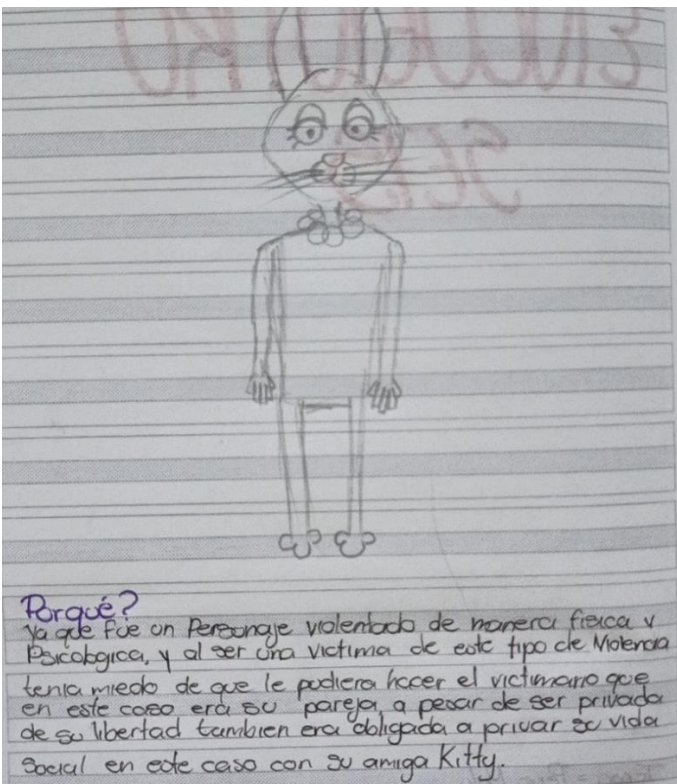 Porqué?
Ya que fue un Personaje violentado de manera fisica y
Psicologica, y al ser una victima de este tipo de Violencia
tenia miedo de que le pudiera hacer el victimario que
en este caso era su pareja, a pesar de ser privada
de su libertad tambien era obligada a privar su vida
Social en este caso con su amiga Kitty.